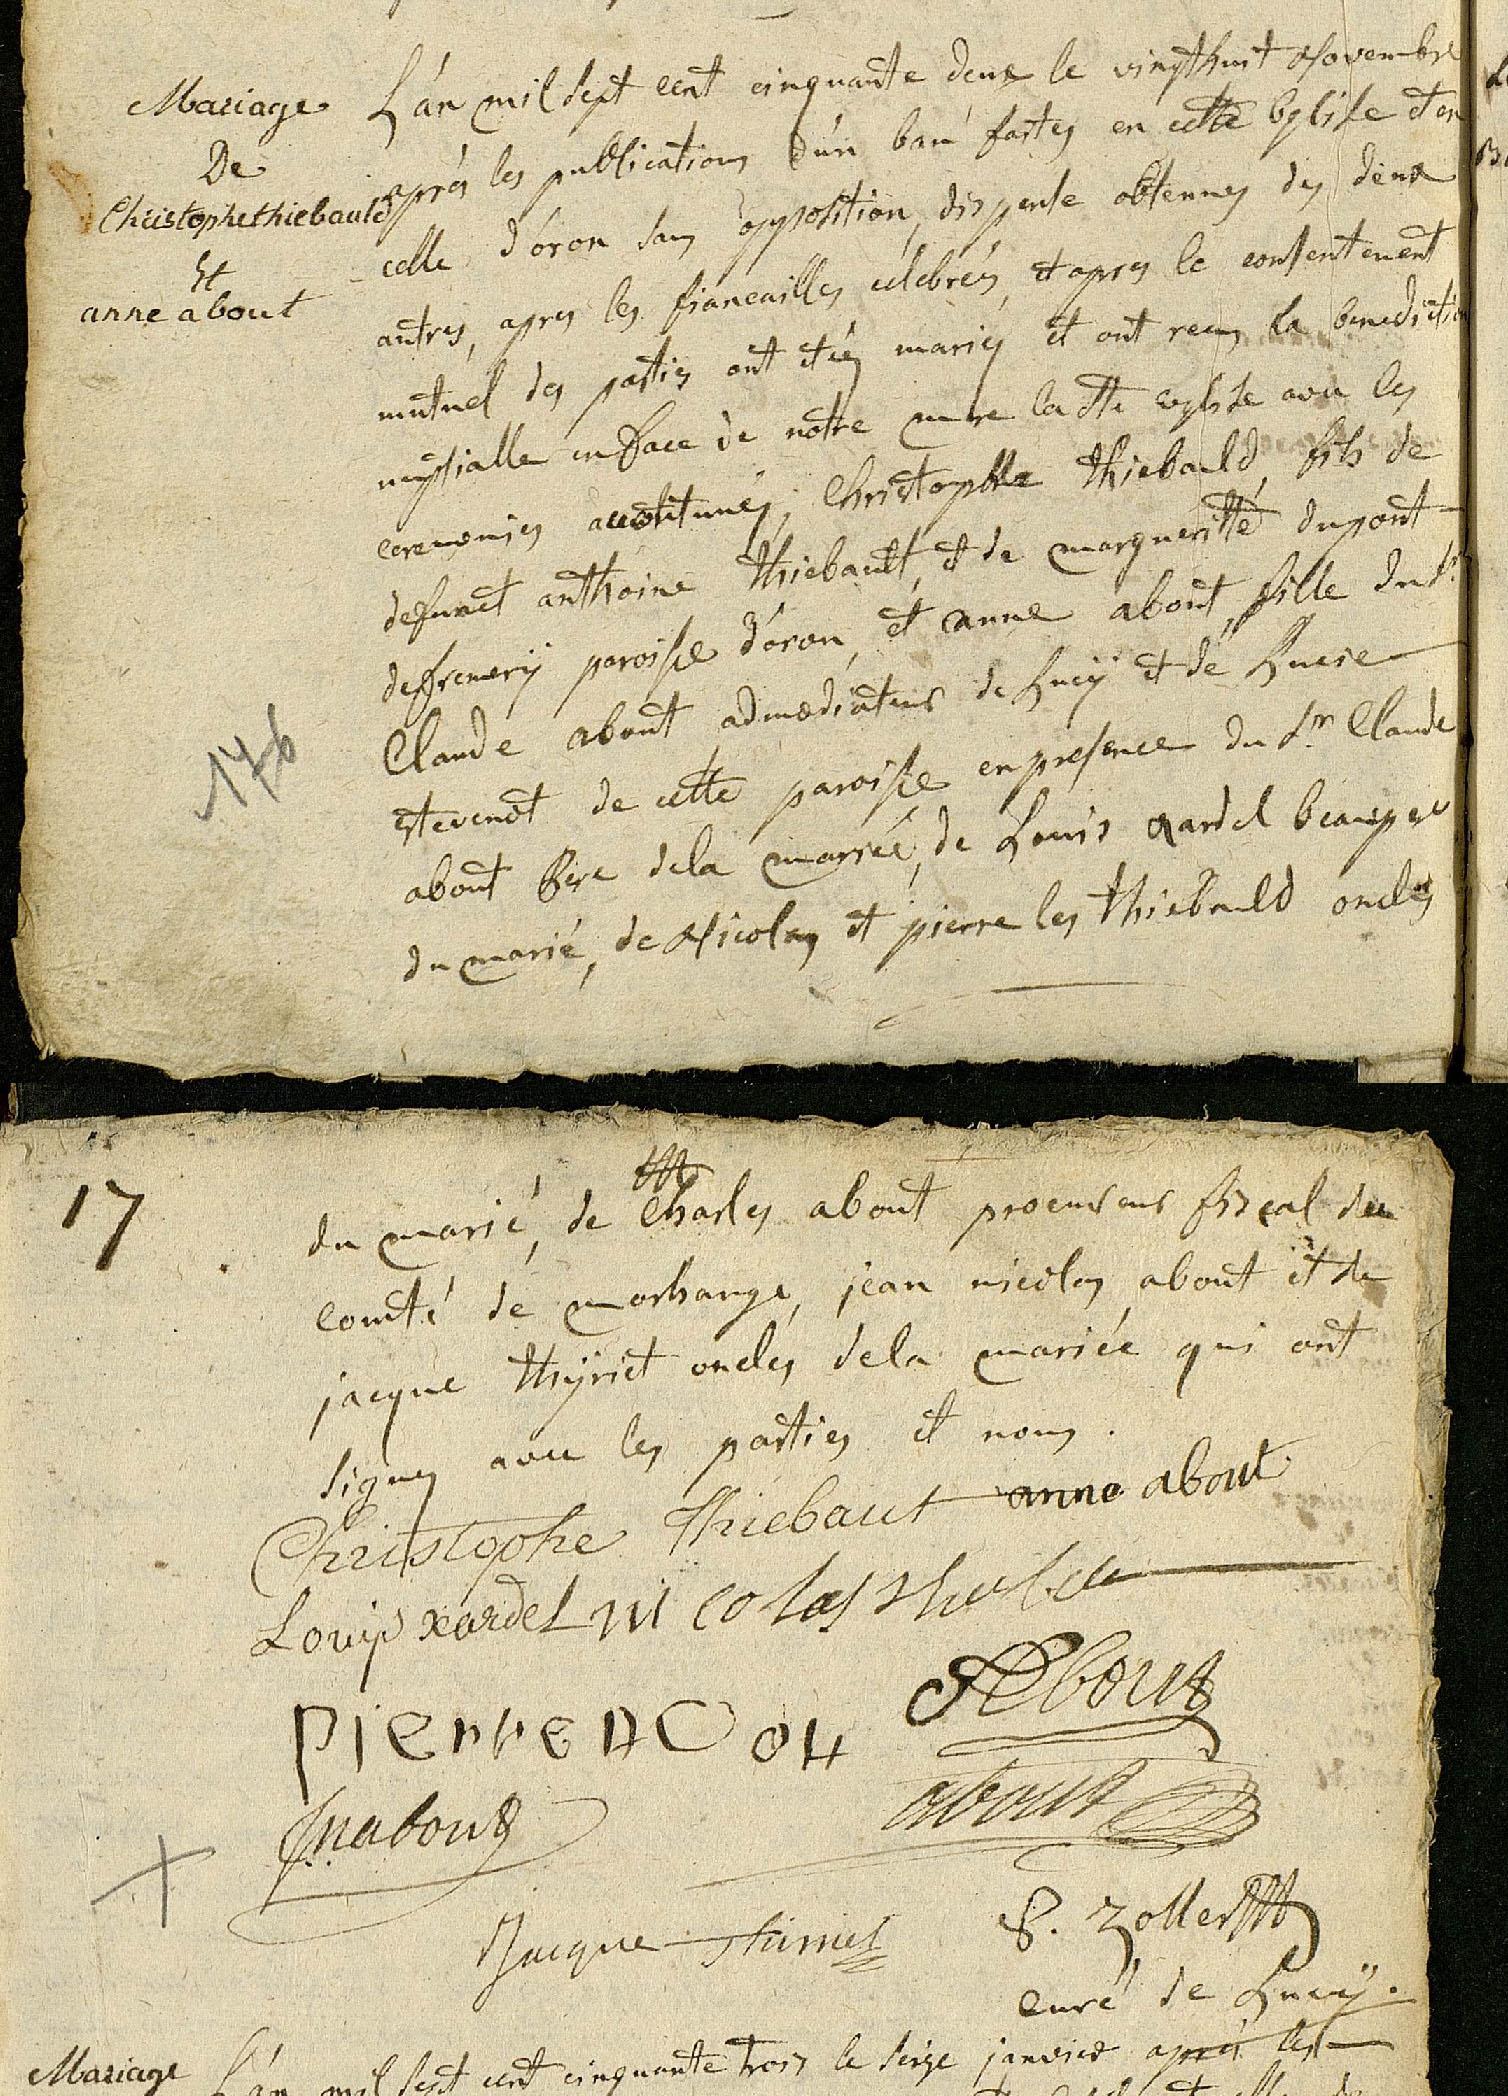 Mariage
De
Christophe thiebauld
Et
anne about
L'an mil sept cent cinquante deux le vingthuit Novembre
aprés les publications d'un banc faites en cette Eglise et en
celle d'oron sans opposition, dispense obtenues des deux
autres, apres les fiancailles celebrées, et apres le consentement
mutuel des parties ont etés mariés et ont recus la benediction
nuptialle en face de notre mere la Ste eglise avec les
ceremonies accoutumées, Christophle thiebauld, fils de
defunct anthoine thiebault, et de margueritte dupont
de fremerÿ paroisse d'oron, et anne about, fille du Sr
Claude about admodiateur de Lucÿ et de Lucie
estevenot de cette paroisse en presence du Sr Claude
about Pere de la mariée, de Louis xardel beaupere
du marié, de Nicolas et pierre les thiebauld oncles
176
17
du marié, de Charles about procureur fiscal du
comté de morhange, jean nicolas about et de
jacque thÿriet oncles de la mariée qui ont
signes avec les parties et nous.
Christophe Thiebaut anne about
Louis xardel nicolas
PierrE
About
J.n about
about
Jacque
P. Zoller
curé de Lucÿ.
Mariage
L'an mil sept cent cinquante trois le seize janvier aprés les